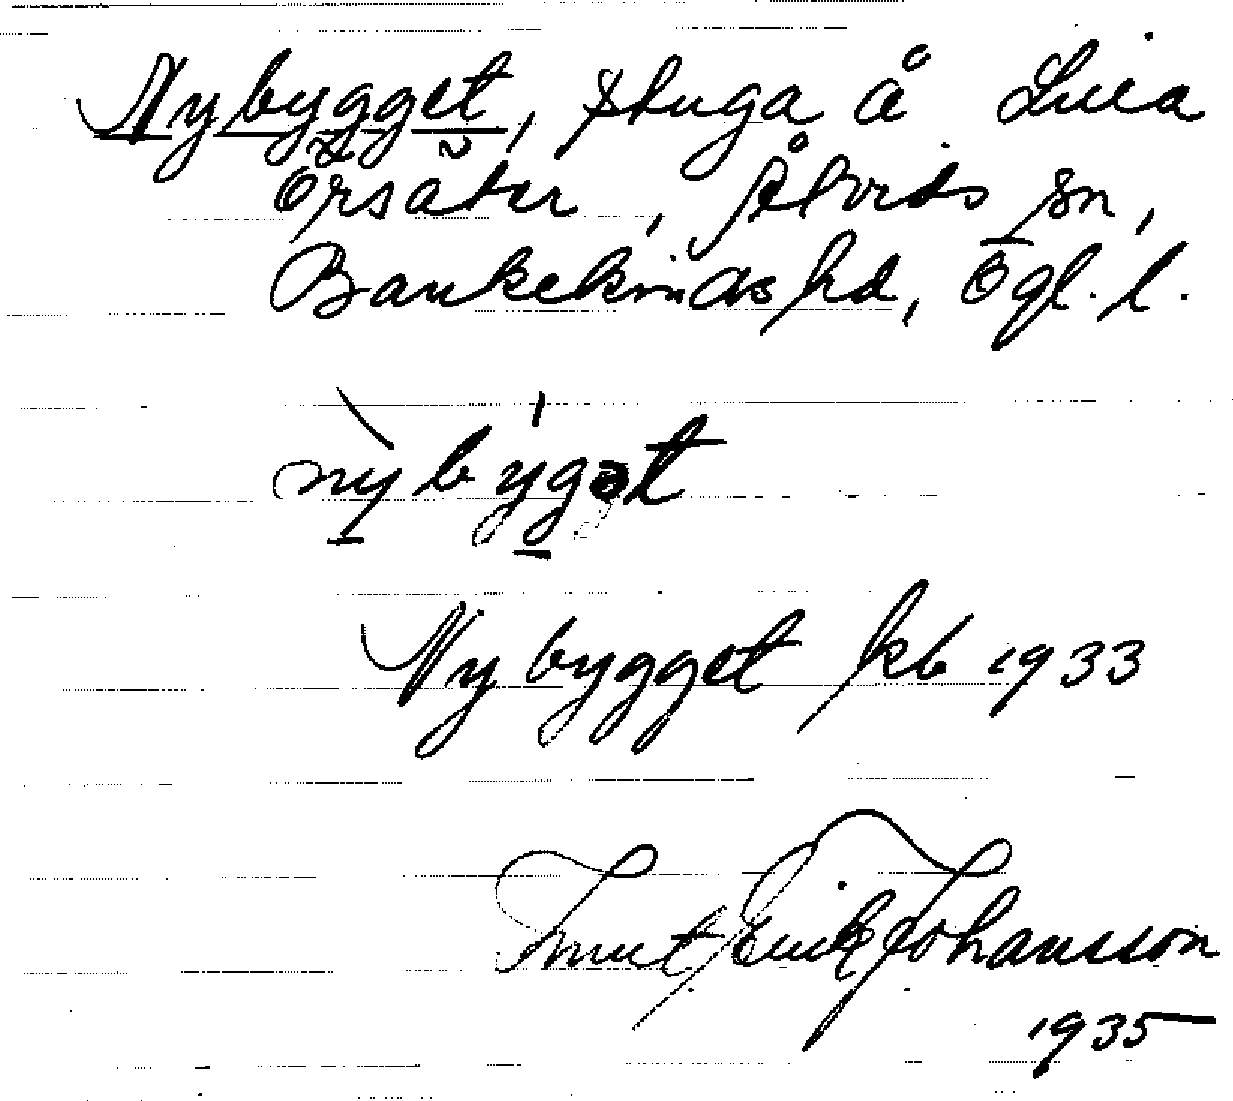 Nybygget, stuga å Lilla
Örsätter, Åtvids sn,
Bankekinds hd, Ögl. l.
nỳbýgət
Nybygget kb 1933
Knut Erik Johansson
1935